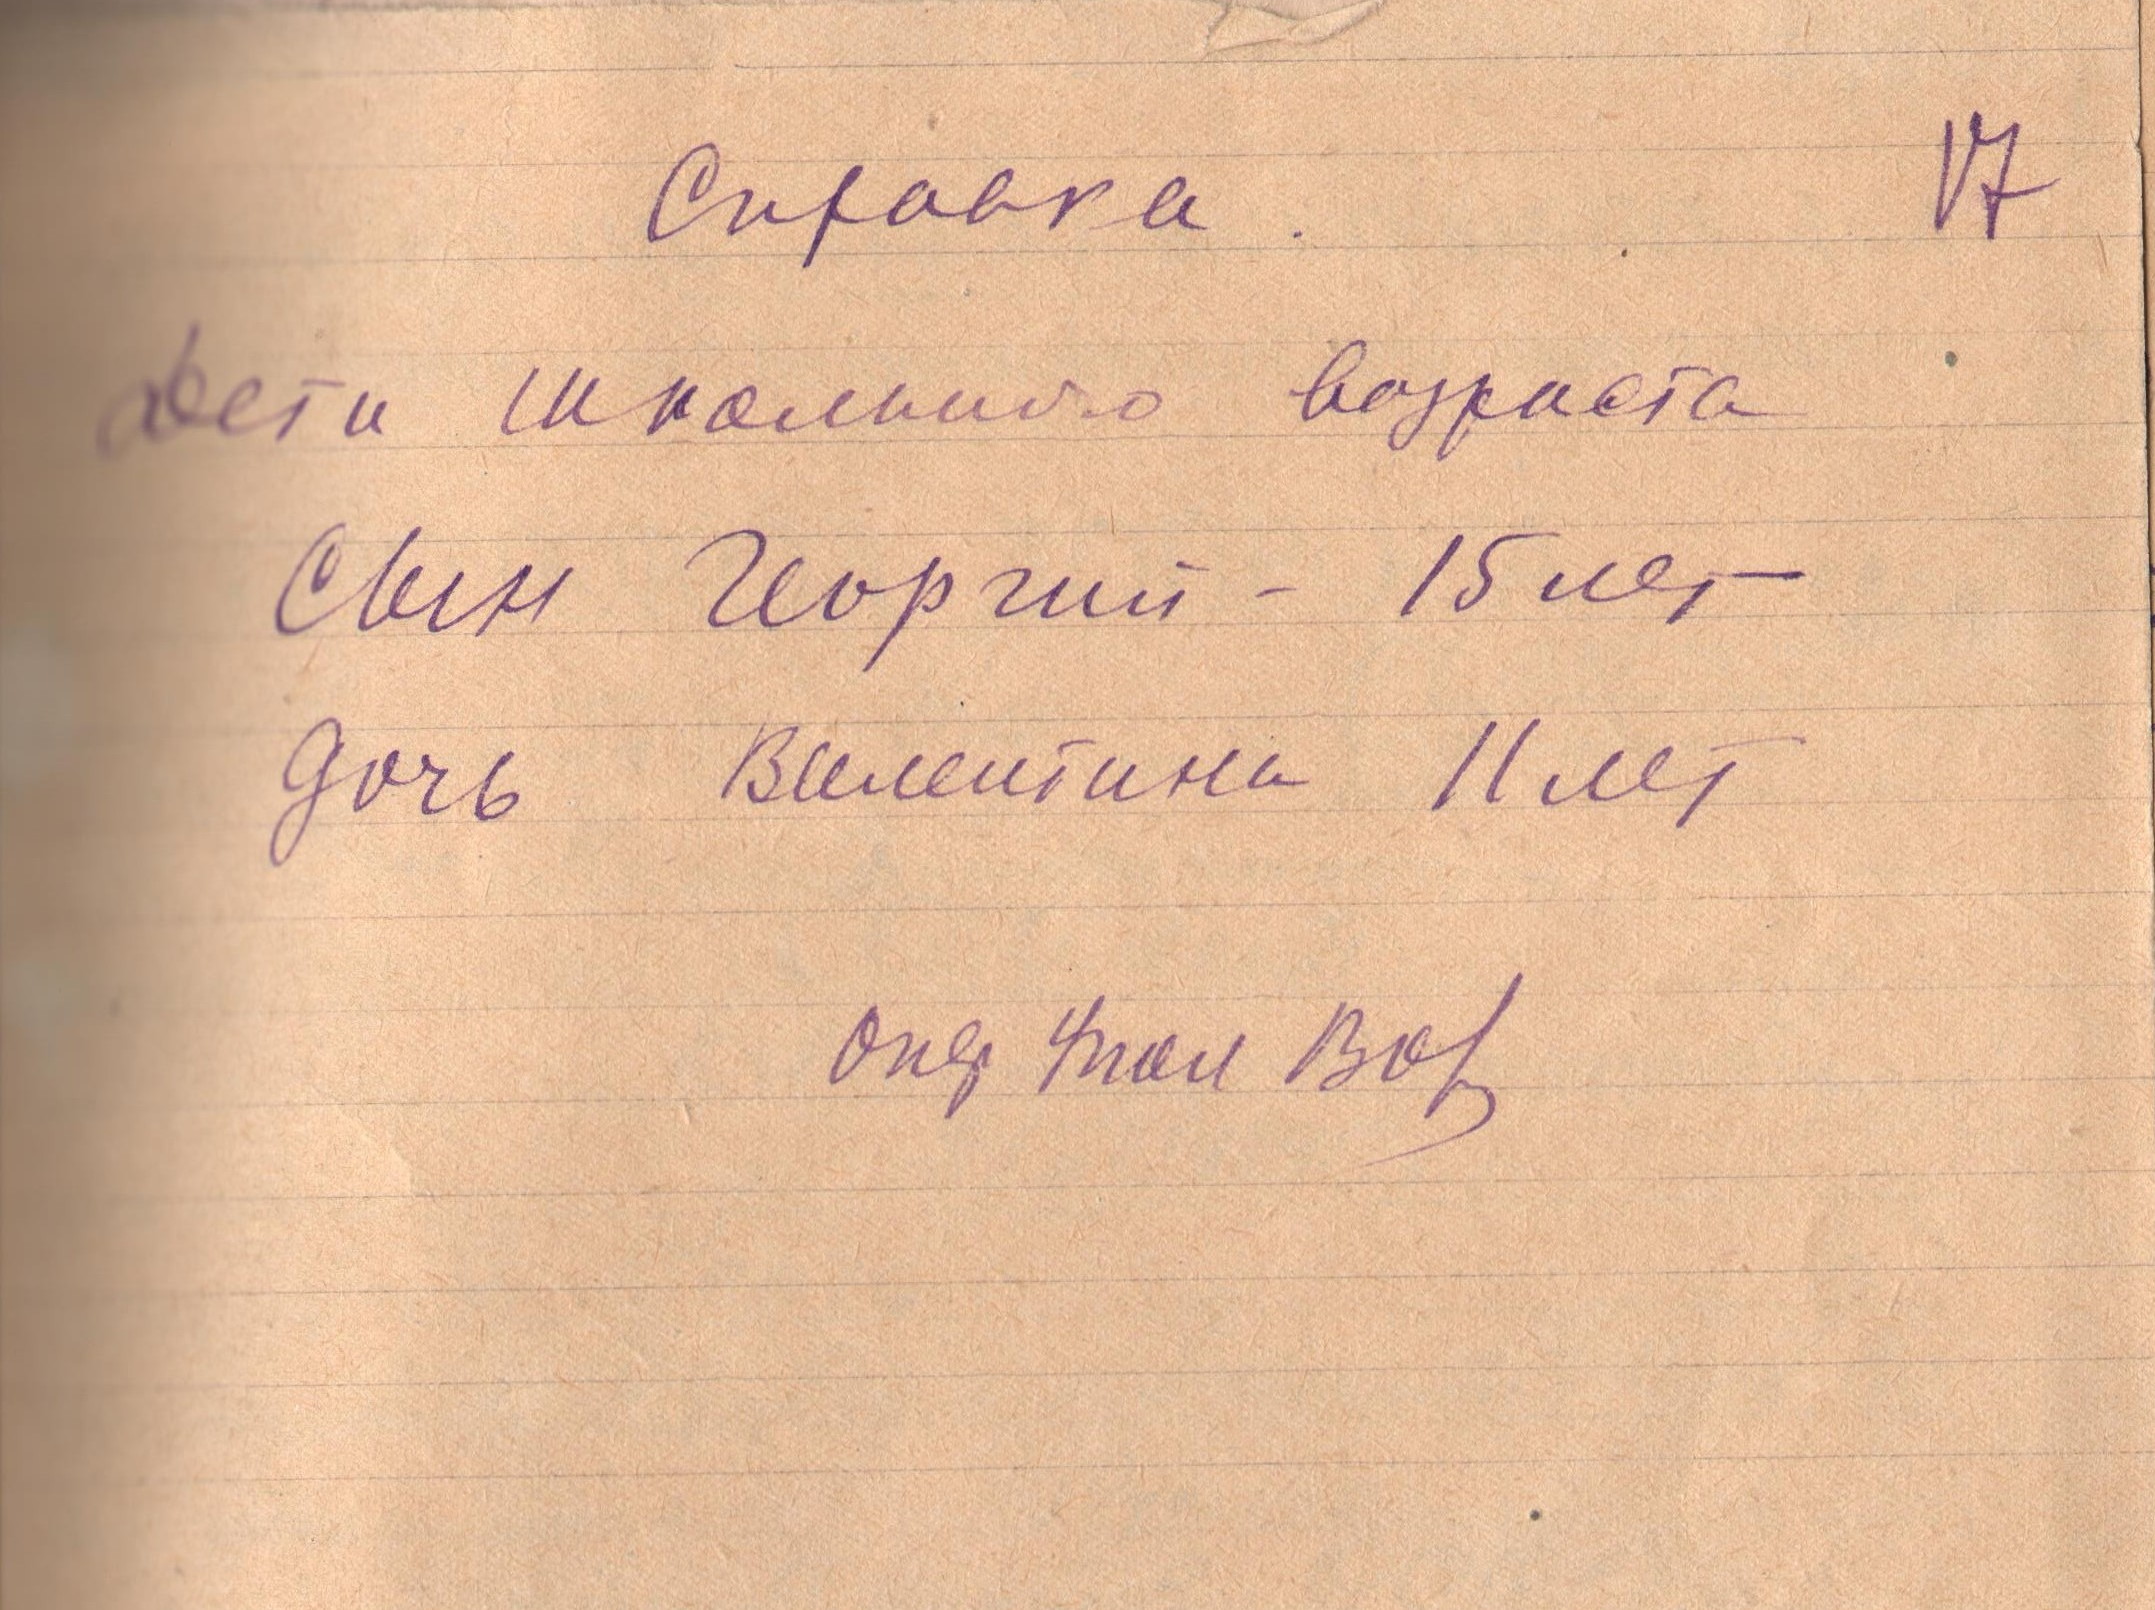 Справка. 17
Дети школьного возраста
Сын Георгий - 15 лет
Дочь Валентина 11 лет
Опер